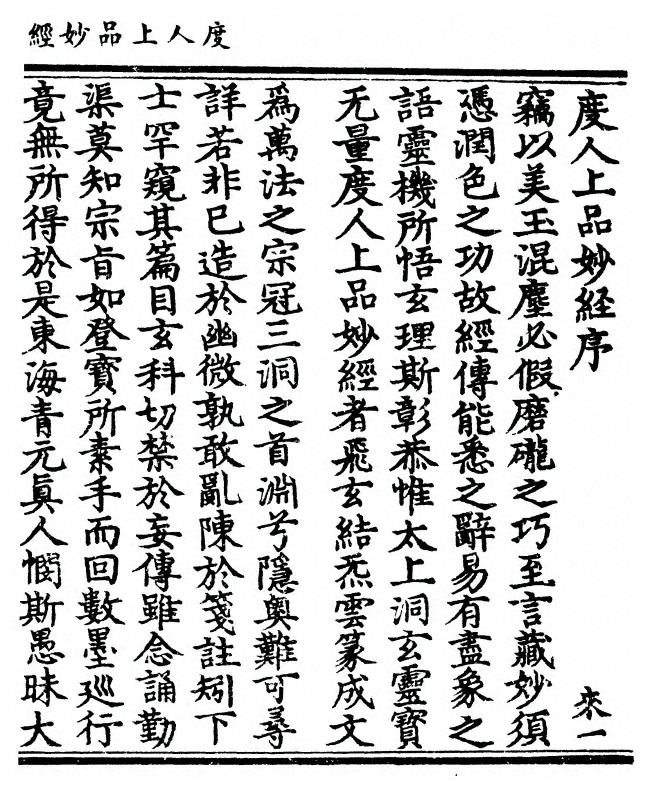 度人上品妙經
度人上品妙経序
來一
竊以美玉混塵必假磨礲之巧至言藏妙須
憑潤色之功故經傳能悉之辭易有盡象之
語靈機所悟玄理斯彰恭惟太上洞玄靈寶
无量度人上品妙經者飛玄結炁雲篆成文
爲萬法之宗冠三洞之首淵兮隱奥難可尋
詳若非已造於幽微孰敢亂陳於箋註矧下
士罕窺其篇目玄科切禁於妄傳雖念誦勤
渠莫知宗旨如登寶所素手而回數墨巡行
竟無所得於是東海青元眞人憫斯愚昧大